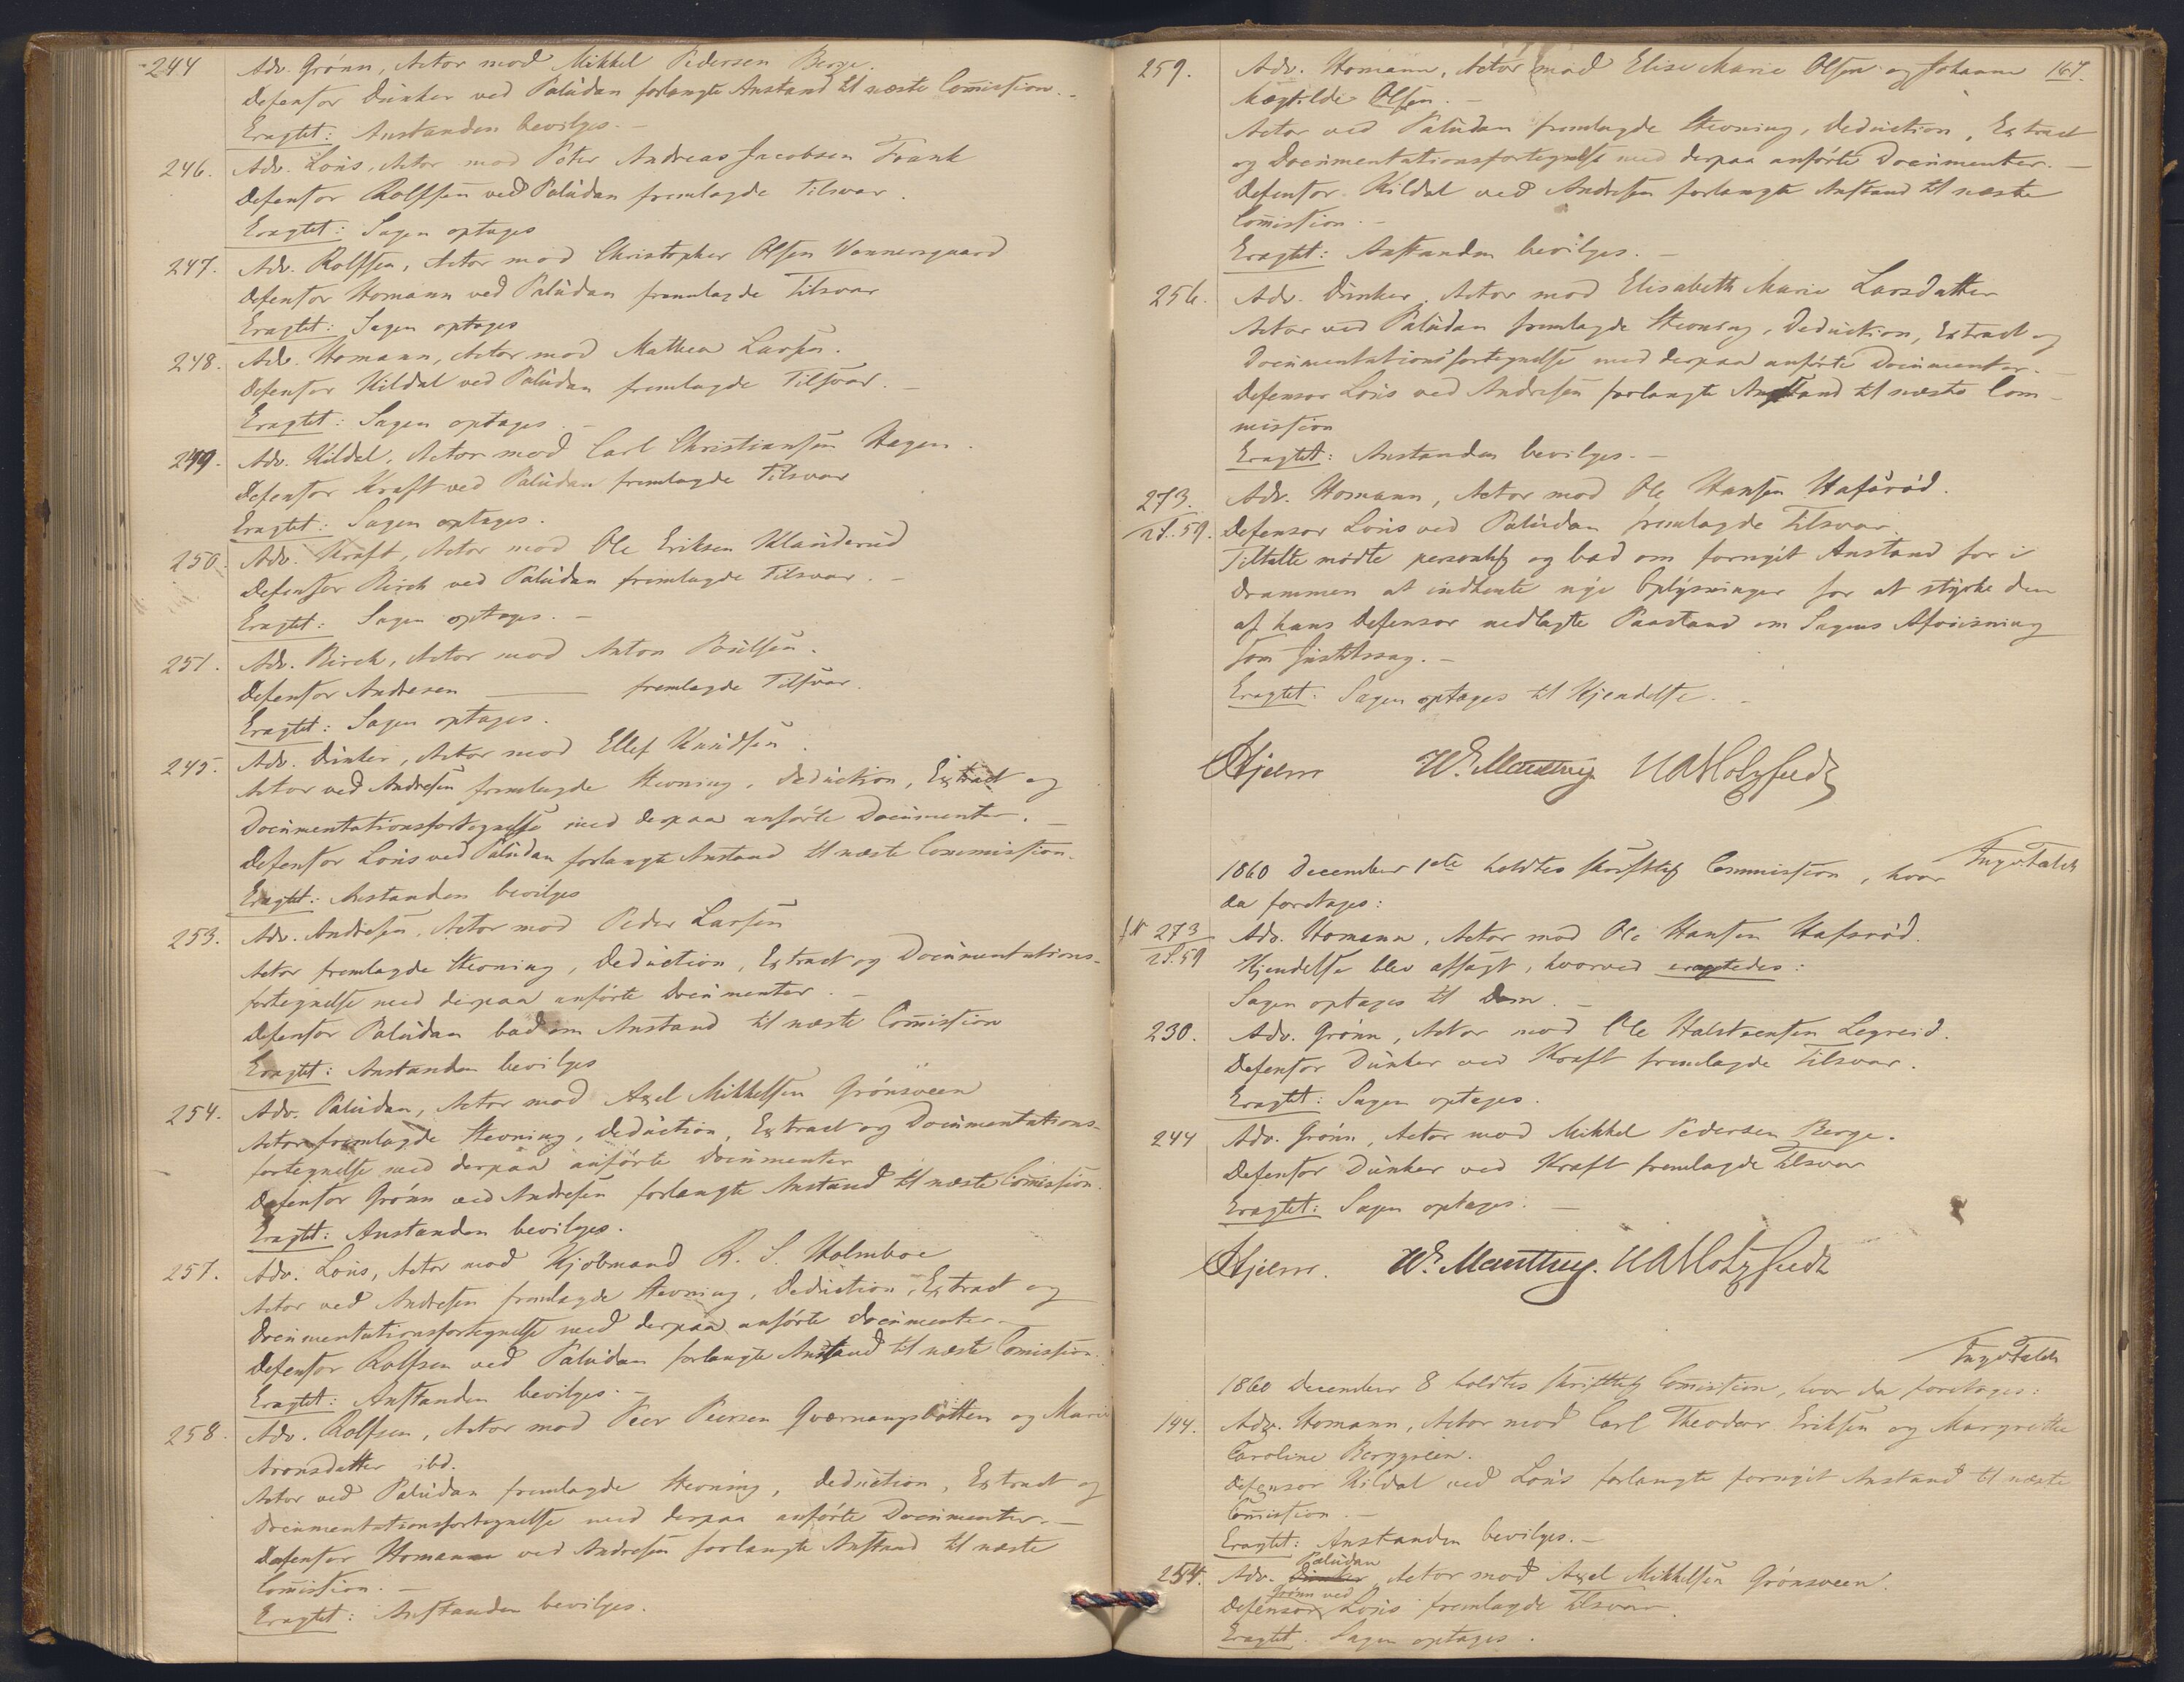 244 Adv. Grönn, Actor mod Mikkel Pedersen Berge.
Defensor Dunker ved Paludan forlangte Anstand til næste Comission.
Eragtet: Anstanden bevilges. –
246. Adv. Lous, Actor mod Peter Andreas Jacobsen Frank
Defensor Rolfsen ved Paludan fremlagde Tilsvar.
Eragtet: Sagen optages
247. Adv. Rolfsen, Actor mod Christopher Olsen Wennersgaard
Defensor Homann ved Paludan fremlagde Tilsvar
Eragtet: Sagen optages
248. Adv. Homann, Actor mod Mathea Larsen.
Defensor Kildal ved Paludan fremlagde Tilsvar. –
Eragtet: Sagen optages. –
249. Adv. Kildal, Actor mod Carl Christiansen Hagen.
Defensor Kraft ved Paludan fremlagde Tilsvar
Eragtet: Sagen optages.
250. Adv. Kraft, Actor mod Ole Eriksen Klanderud
Defensor Birch ved Paludan fremlagde Tilsvar. –
Eragtet: Sagen optages. –
251. Adv. Birch, Actor mod Anton Poulsen.
Defensor Andresen —— fremlagde Tilsvar.
Eragtet: Sagen optages.
245. Adv. Dunker, Actor mod Ellef Knudsen.
Actor ved Andresen fremlagde Stevning, Deduction, Extract og
Documentationsfortegnelse med derpaa anförte Documenter. –
Defensor Lous ved Paludan forlangte Anstand til næste Commission.
Eragtet: Anstanden bevilges
253. Adv. Andresen, Actor mod Peder Larsen
Actor fremlagde Stevning, Deduction, Extract og Documentations-
fortegnelse med derpaa anförte Documenter. –
Defensor Paludan bad om Anstand til næste Comission
Eragtet: Anstanden bevilges
254. Adv. Paludan, Actor mod Axel Mikkelsen Grönsveen
Actor fremlagde Stevning, Deduction, Extract og Documentations-
fortegnelse med derpaa anförte Documenter
Defensor Grönn ved Andresen forlangte Anstand til næste Comission.
Eragtet: Anstanden bevilges.
257. Adv. Lous, Actor mod Kjöbmand R. S. Holmboe
Actor ved Andresen fremlagde Stevning, Deduction, Extract og
Documentationsfortegnelse med derpaa anförte Documenter –
Defensor Rolfsen ved Paludan forlangte Anstand til næste Comission.
Eragtet: Anstanden bevilges. –
258. Adv. Rolfsen, Actor mod Peer Peersen Qvœrnangsbotten og Marie
Aronsdatter ibd.
Actor ved Paludan fremlagde Stevning, Deduction, Extract og
Documentationsfortegnelse med derpaa anförte Documenter. –
Defensor Homann ved Andresen forlangte Anstand til næste
Comission. –
Eragtet: Anstanden bevilges.
259. Adv. Homann, Actor mod Elise Marie Olsen og Johanne 167.
Magtilde Olsen. –
Actor ved Paludan fremlagde Stevning, Deduction, Extract
og Documentationsfortegnelse med derpaa anförte Documenter. –
Defensor Kildal ved Andresen forlangte Anstand til næste
Comission. –
Eragtet: Anstanden bevilges. –
256. Adv. Dunker, Actor mod Elisabeth Marie Larsdatter
Actor ved Paludan fremlagde Stevning, Deduction, Extract og
Documentationsfortegnelse med derpaa anförte Documenter. –
Defensor Lous ved Andresen forlangte Anstand til næste Com-
mission
Eragtet: Anstanden bevilges. –
273. Adv. Homann, Actor mod Ole Hansen Hafsröd.
59. Defensor Lous ved Paludan fremlagde Tilsvar.
Tiltalte mödte personlig og bad om fornyet Anstand for i
Drammen at indhente nye Oplysninger for at styrke den
af hans Defensor nedlagte Paastand om Sagens Afviisning
som Justitssag. –
Eragtet: Sagen optages til Kjendelse. –
Hjelm W. Manthey HAHolzfeldt
1860 December 1ste holdtes skriftlig Commission, hvor
da foretages:
No 273 Adv. Homann, Actor mod Ole Hansen Hafsröd.
59 Kjendelse blev afsagt, hvorved eragtedes:
Sagen optages til Dom. –
230. Adv. Grönn, Actor mod Ole Halstvensen Legreid.
Defensor Dunker ved Kraft fremlagde Tilsvar.
Eragtet: Sagen optages.
244 Adv. Grönn, Actor mod Mikkel Pedersen Berge.
Defensor Dunker ved Kraft fremlagde Tilsvar
Eragtet: Sagen optages. –
Hjelm. W. Manthey. HAHolzfeldt
1860 December 8 holdtes skriftlig Comission, hvor da foretages:
194. Adv. Homann, Actor mod Carl Theodor Eriksen og Margrethe
Caroline Berggreen.
Defensor Kildal ved Lous forlangte fornyet Anstand til næste
Comission. –
Eragtet: Anstanden bevilges. –
Paludan
254. Adv. Dunker, Actor mod Axel Mikkelsen Grönsveen.
Grönn ved
Defensor Lous fremlagde Tilsvar.
Eragtet. Sagen optages.